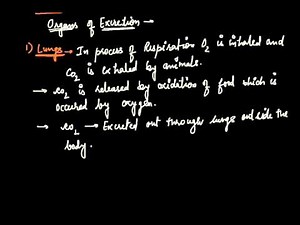 Organs of Excretion -
1) Lungs - In process of Respiration O2 is inhaled and
CO2 is exhaled by animals.
→ CO2 is released by oxidition of food which is
occured by oxygen.
→ CO2 → Excreted out through lungs outside the
body.